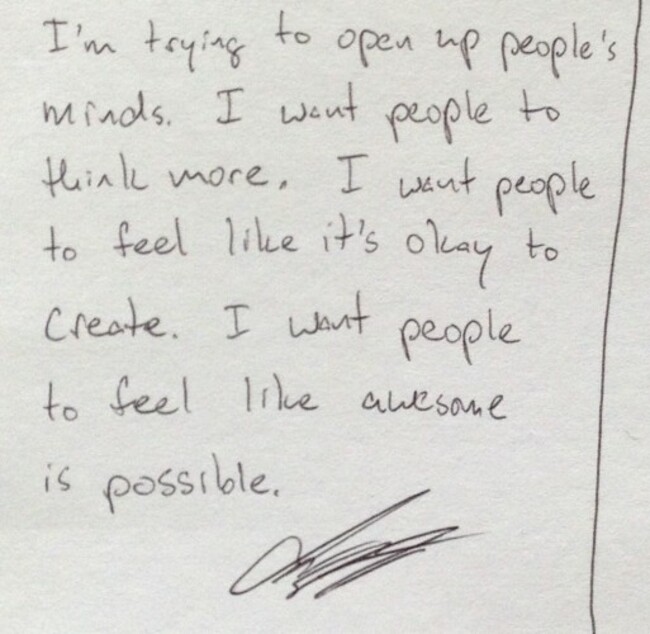 I'm trying to open up people's
minds. I want people to
think more. I want people
to feel like it's okay to
Create. I want people
to feel like awesome
is possible.